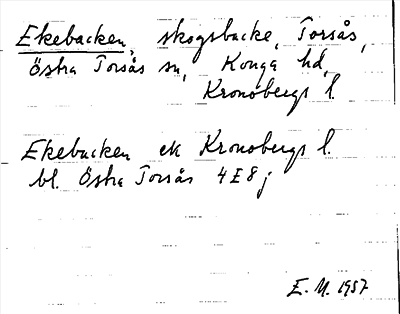 Ekebacken, skogsbacke, Torsås,
Östra Torsås sn, Konga hd,
Kronobergs l.
Ekebacken ek Kronobergs l.
bl. Östra Torsås 4E8j
E. M. 1957